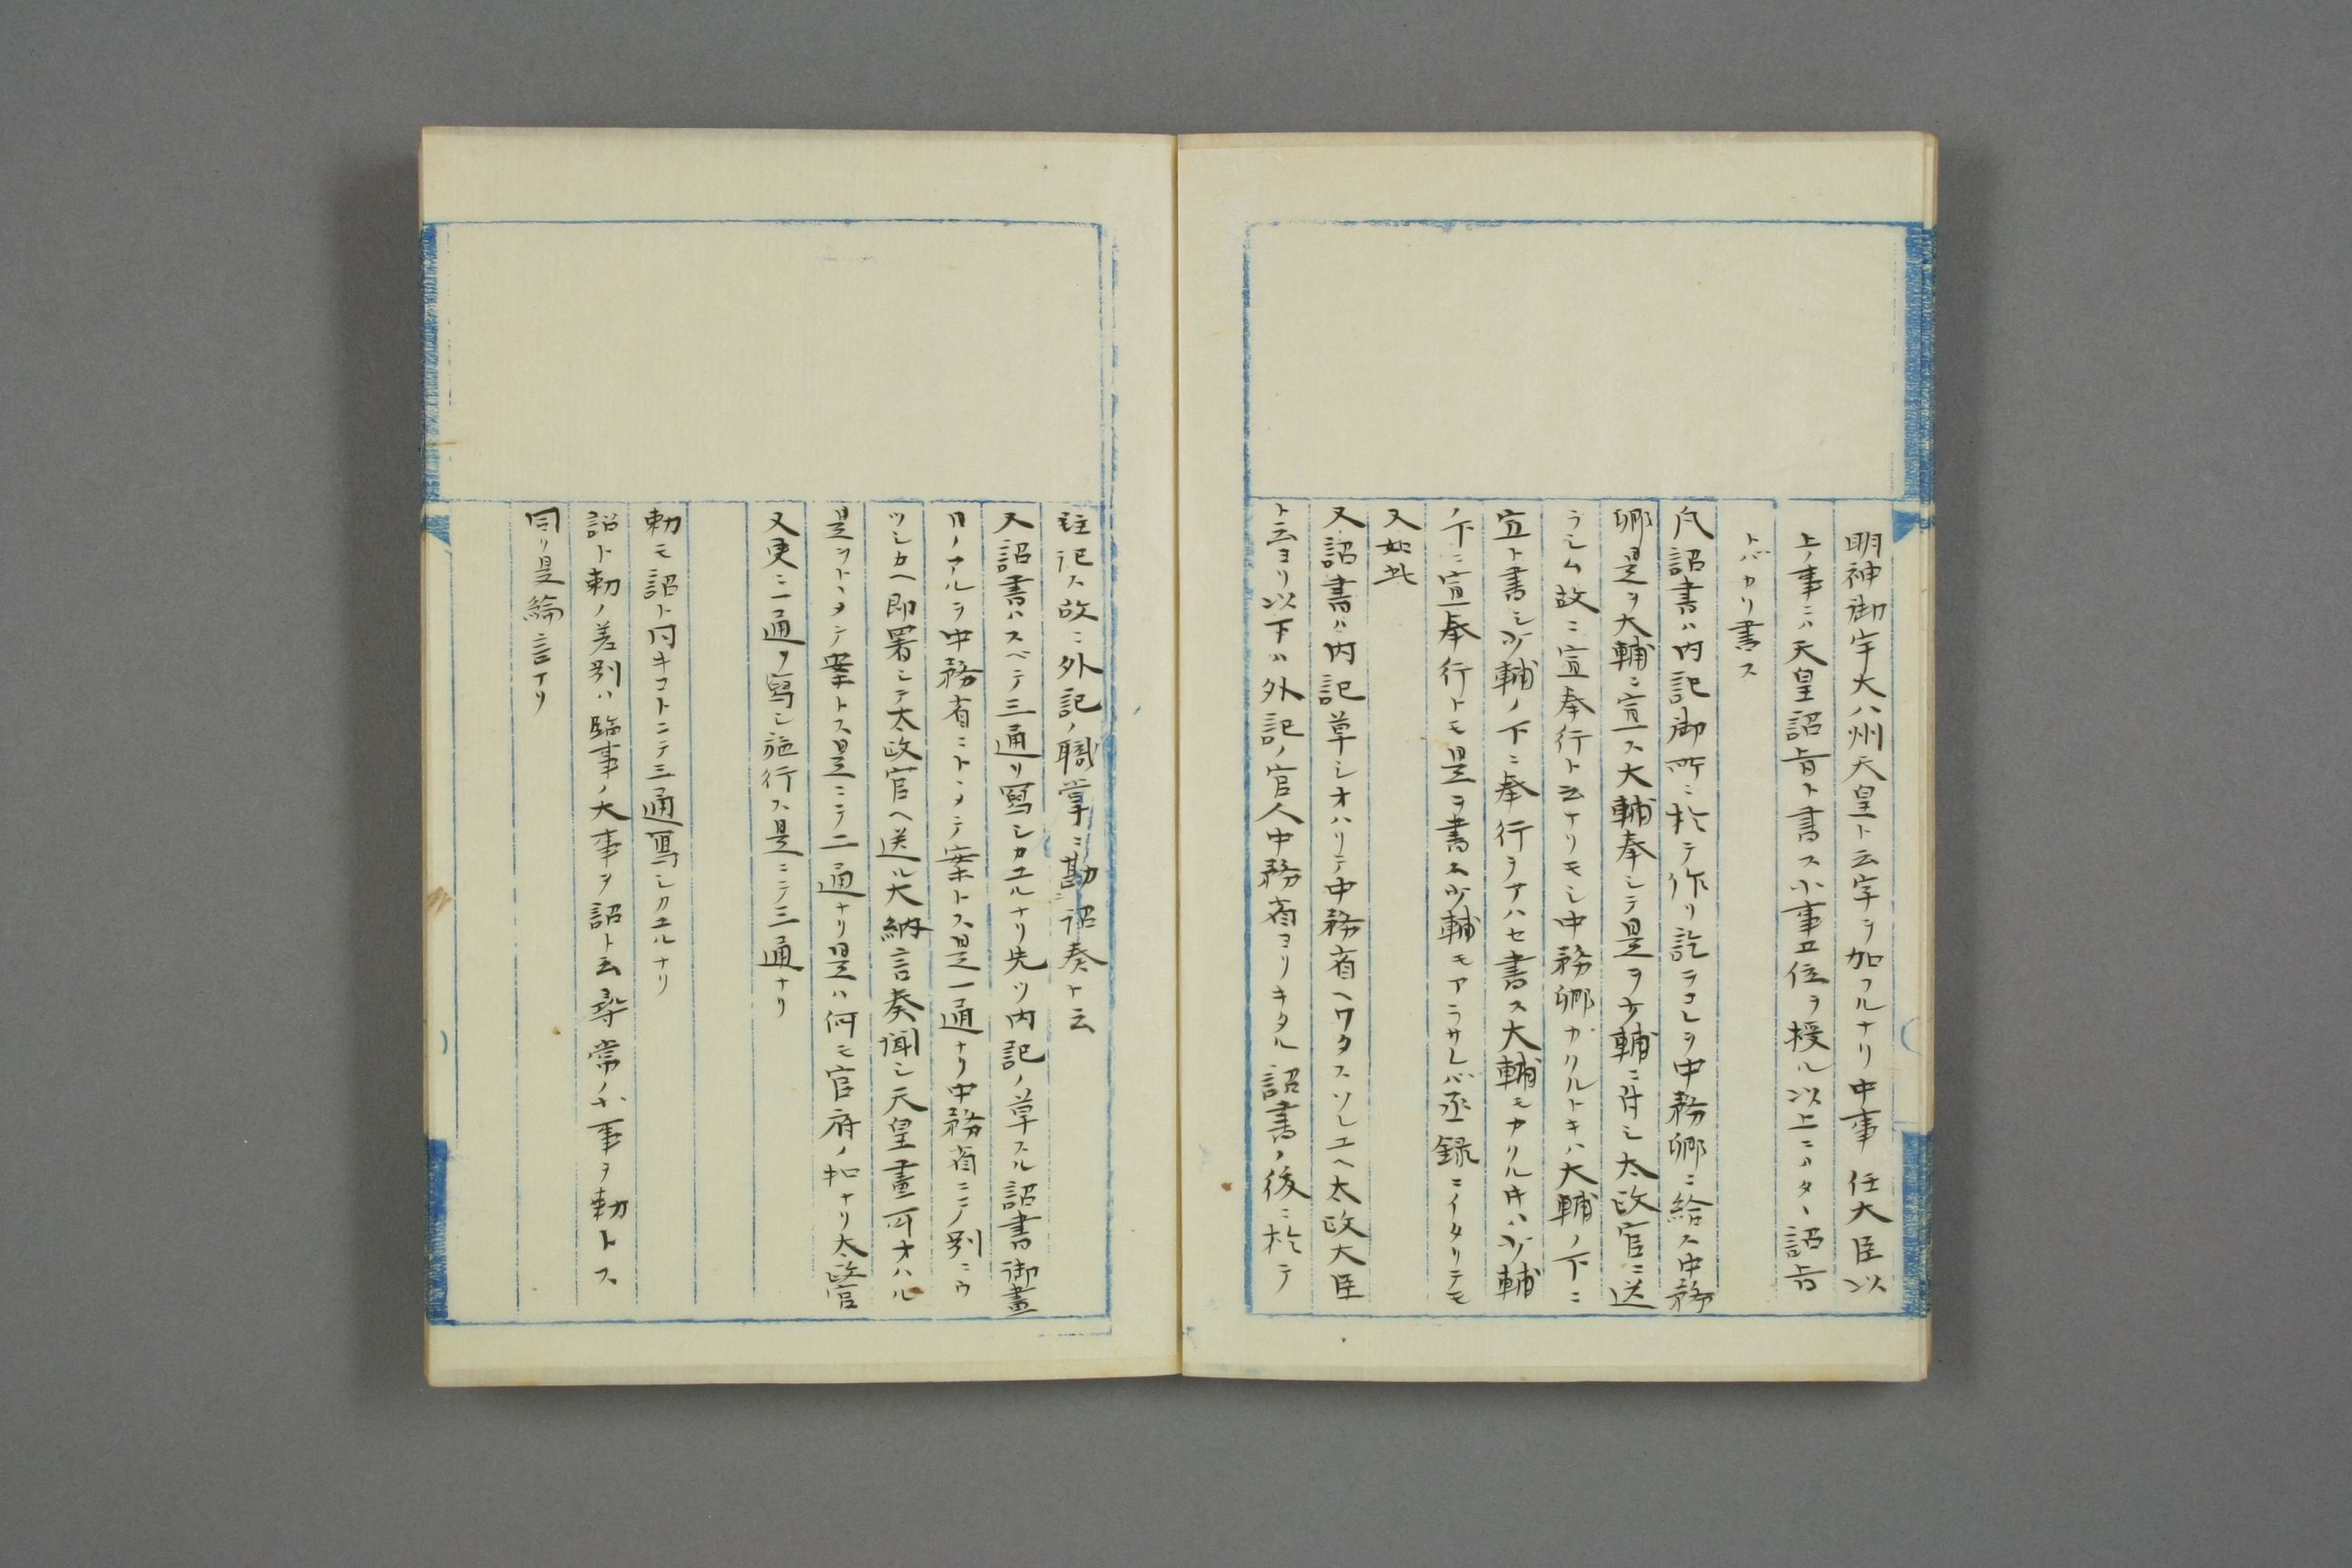 明神御宇大八州天皇ト云字ヲ加フルナリ中事 任大臣以
上ノ事ニハ天皇詔旨ト書ス小事五位ヲ授ル以上ニハタヽ詔旨
トバカリ書ス
凡詔書ハ内記御所ニ於テ作リ訖テコレヲ中務卿ニ給ス中務
卿是ヲ大輔ニ宣ス大輔奉シテ是ヲ少輔ニ付シ太政官ニ送
ラシム故ニ宣奉行ト云ナリモシ中務卿カクルトキハ大輔ノ下ニ
宣ト書シ少輔ノ下ニ奉行ヲアハセ書ス大輔モカクル时ハ少輔
ノ下ニ宣奉行トモ是ヲ書ス少輔モアラサレバ丞録ニイタリテモ
又如此
又詔書ハ内記草シオハリテ中務省ヘワタスソレユヘ太政大臣
ト云ヨリ以下ハ外記ノ官人中務省ヨリキタル詔書ノ後ニ於テ
註記ス故ニ外記ノ職掌ニ勘詔奏ト云
又詔書ハスベテ三通リ写シカエルナリ先ツ内記ノ草スル詔書御畫
日ノアルヲ中務省ニトヽメテ案トス是一通ナリ中務省ニテ別ニウ
ツシカヘ即署シテ太政官ヘ送ル大納言奏聞シ天皇畫可オハル
是ヲトヽメテ案トス是ニテ二通ナリ是ハ何モ官府ノ扣ナリ太政官
又更ニ一通ヲ寫シ施行ス是ニテ三通ナリ
勅モ詔ト同キコトニテ三通寫シカエルナリ
詔ト勅ノ差別ハ臨事ノ大事ヲ詔ト云尋常ノ小事ヲ勅トス
同リ是綸言ナリ